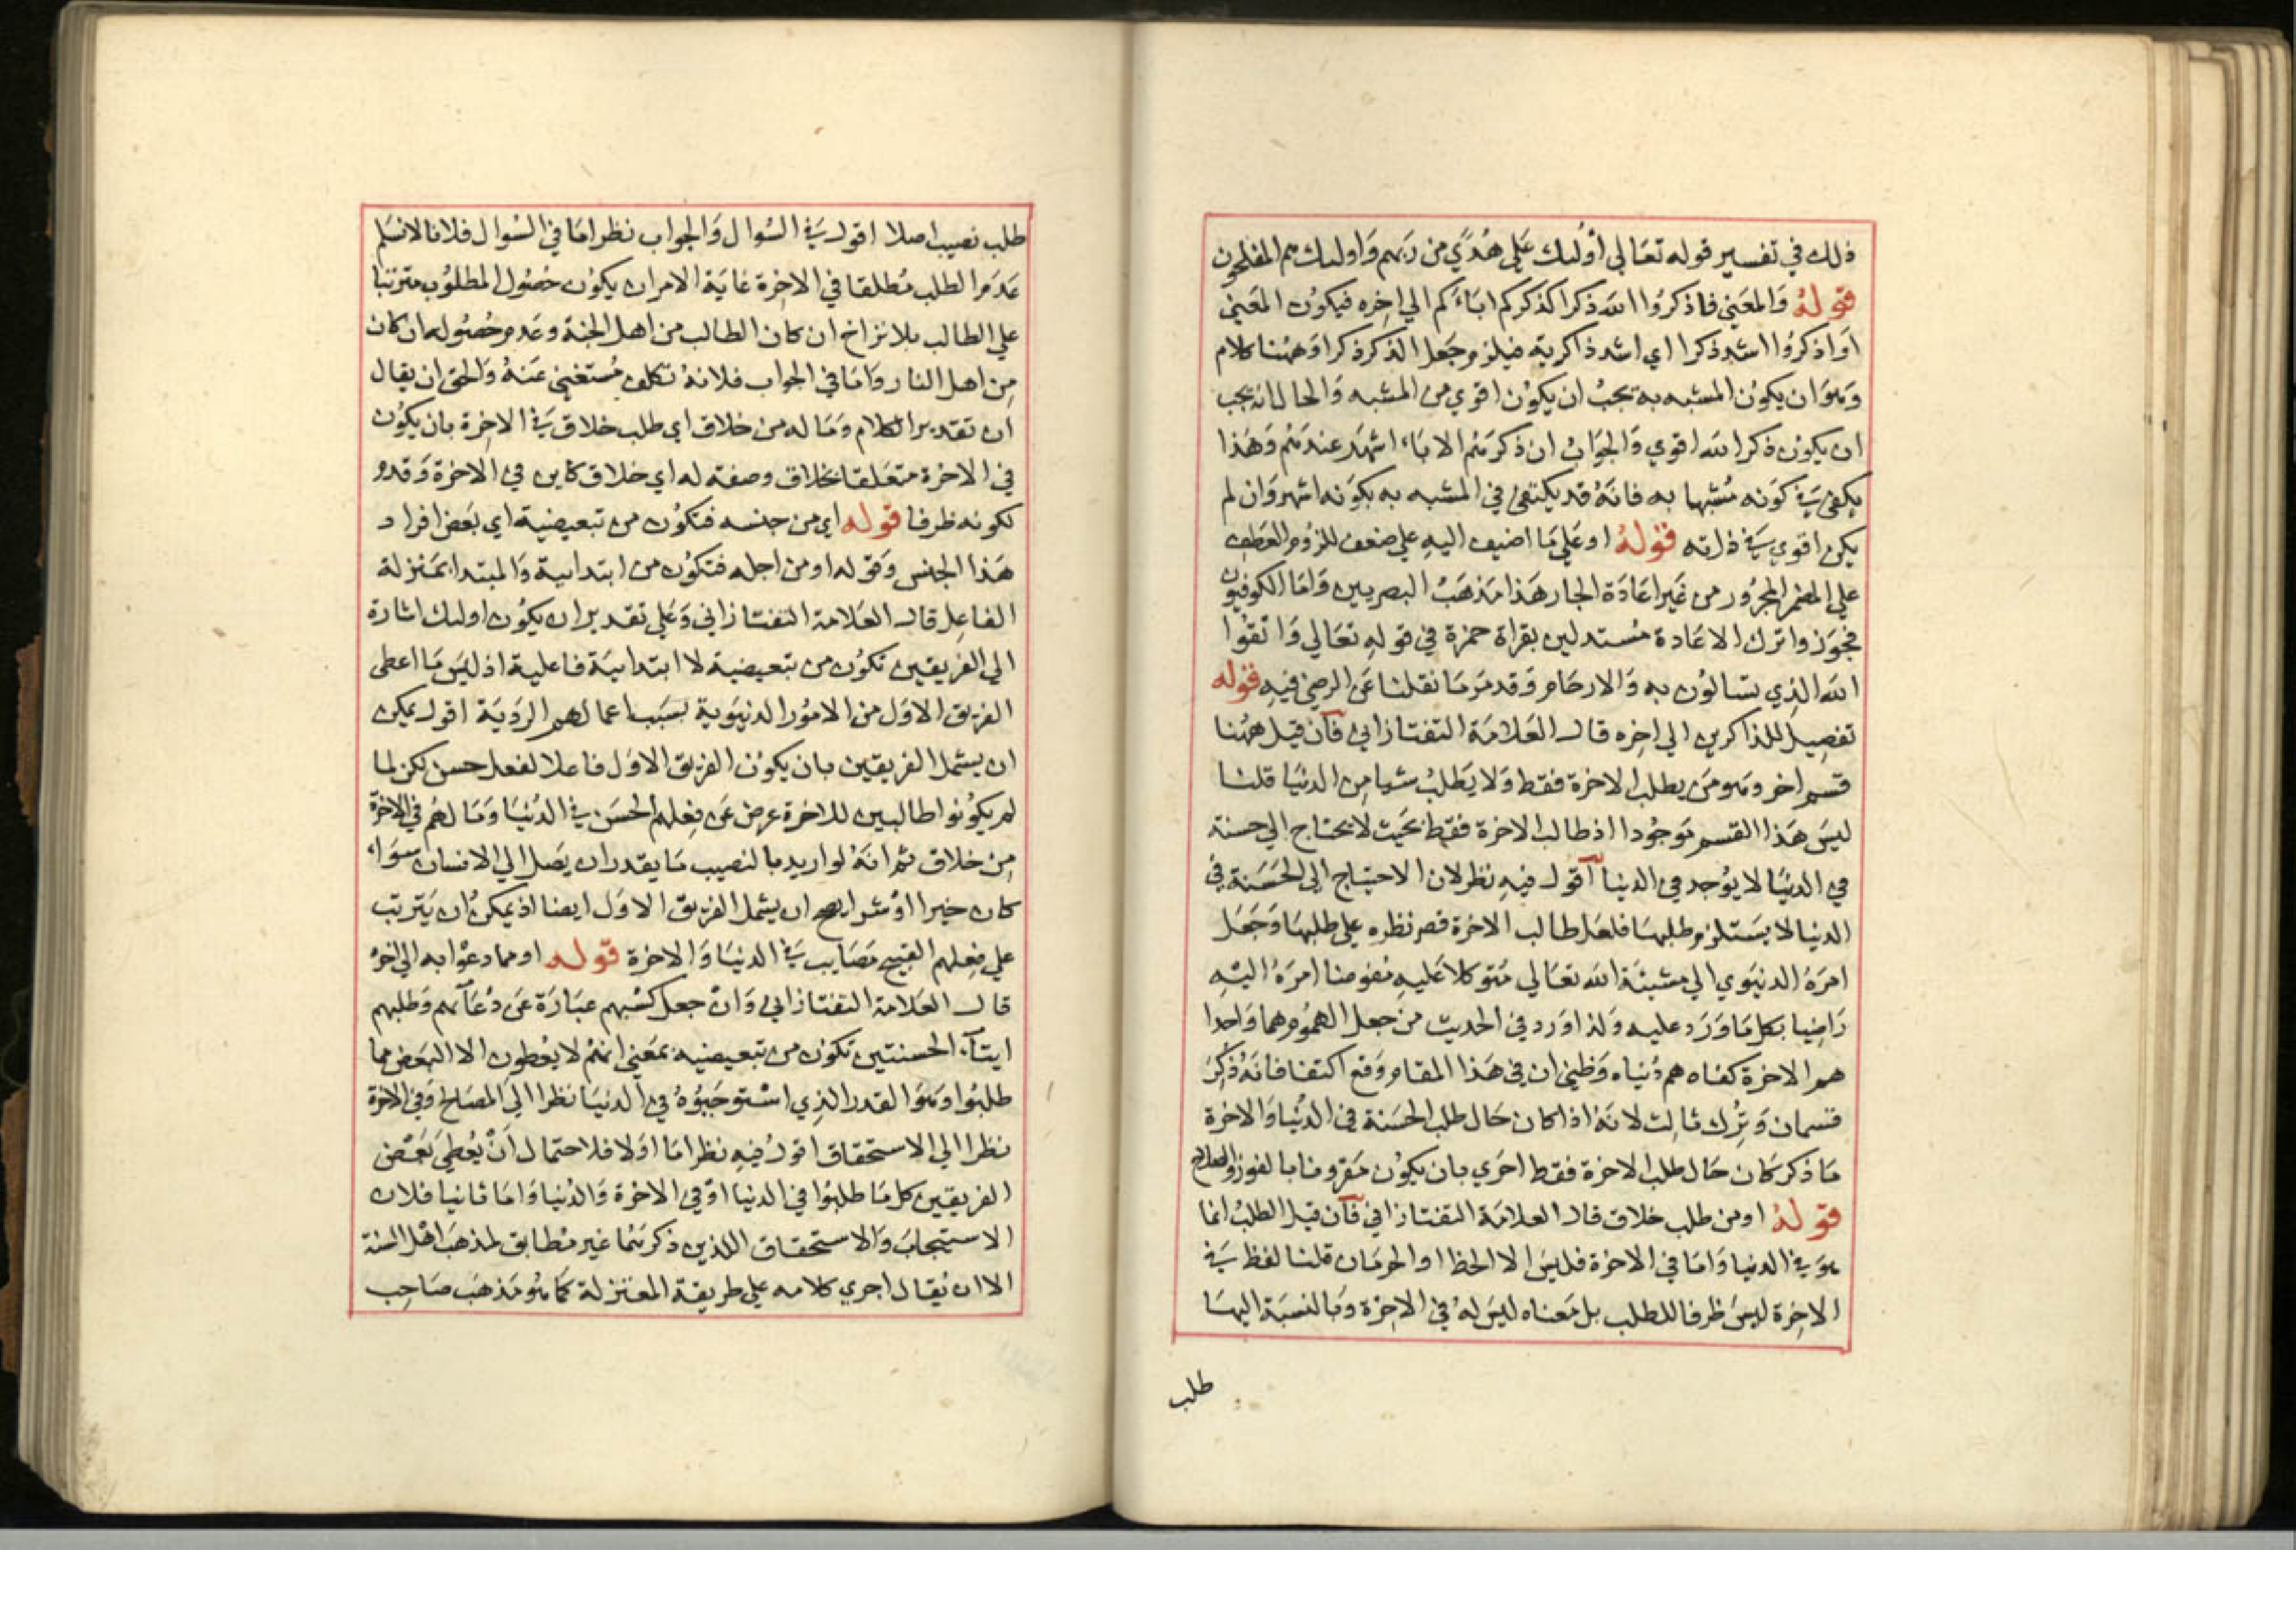 ذلك في تفسير قوله تعالى أولئك على هدى من ربهم واولئك هم المفلحون
قوله والمعنى فاذكروا الله ذكرا كذكركم اباءكم الي اخره فيكون المعنى
او اذكروا اشد ذكرا اي اشد ذاكرية فيلزم جعل الذكر ذكرا وههنا كلام
وهو ان يكون المشبه به يجب ان يكون اقوي من المشبه والحال انه يجب
ان يكون ذكر الله اقوي والجواب ان ذكرهم الاباء اشهر عندهم وهذا
يكفي في كونه مشبها به فانه قد يكتفى في المشبه به بكونه اشهر وان لم
يكن اقوي في ذاته قوله او على ما اضيف اليه على ضعف للزوم العطف
علي المضمر المجرور من غير اعادة الجار هذا مذهب البصريين واما الكوفيون
فجوزوا ترك الاعادة مستدلين بقراة حمزة في قوله تعالي واتقوا
الله الذي تسالون به والارحام وقد مر ما نقلنا عن الرضي فيه قوله
تفصيل للذاكرين الي اخره قال العلامة التفتازاني فان قيل ههنا
قسم اخر وهو من يطلب الاخرة فقط ولا يطلب شيا من الدنيا قلنا
ليس هذا القسم موجودا اذ طالب الاخرة فقط بحيث لا يحتاج الي حسنة
في الدنيا لا يوجد في الدنيا اقول فيه نظر لان الاحتياج الى الحسنة في
الدنيا لا يستلزم طلبها فلعل طالب الاخرة قصر نظره علي طلبها وجعل
امره الدنيوي الي مشيئة الله تعالي متوكلا عليه مفوضا امره اليه
راضيا بكل ما ورد عليه ولذا ورد في الحديث من جعل الهموم هما واحدا
هم الاخرة كفاه هم دنياه وظني ان في هذا المقام وقع اكتفا فانه ذكر
قسمان وترك ثالث لانه اذا كان حال طلب الحسنة في الدنيا والاخرة
ما ذكر كان حال طلب الاخرة فقط احري بان يكون مقرونا بالفوز والفلاح
قوله او من طلب خلاق قال العلامة التفتازاني فان قيل الطلب انما
هو في الدنيا واما في الاخرة فليس الا الحظ او الحرمان قلنا لفظ في
الاخرة ليس ظرفا للطلب بل معناه ليس له في الاخرة وبالنسبة اليها
طلب
طلب نصيب اصلا اقول في السوال والجواب نظر اما في السوال فلانا لا نسلم
عدم الطلب مطلقا في الاخرة غاية الامر ان يكون حصول المطلوب مترتبا
علي الطالب بلا تراخ ان كان الطالب من اهل الجنة وعدم حصوله ان كان
من اهل النار واما في الجواب فلانه تكلف مستغنى عنه والحق ان يقال
ان تقدير الكلام وما له من خلاق اي طلب خلاق في الاخرة بان يكون
في الاخرة متعلقا بخلاق وصفة له اي خلاق كاين في الاخرة وقدم
لكونه ظرفا قوله اي من جنسه فتكون من تبعيضية اي بعض افراد
هذا الجنس وقوله او من اجله فتكون من ابتدايية والمبتدا بمنزلة
الفاعل قال العلامة التفتازاني وعلى تقدير ان يكون اولئك اشارة
الي الفريقين تكون من تبعيضية لا ابتدايية فاعلية اذ ليس ما اعطى
الفريق الاول من الامور الدنيوية بسبب اعمالهم الردية اقول يمكن
ان يشمل الفريقين بان يكون الفريق الاول فاعلا لفعل حسن لكن لما
لم يكونوا طالبين للاخرة عوض عن فعلهم الحسن في الدنيا وما لهم في الاخرة
من خلاق ثم انه لو اريد بالنصيب ما يقدر ان يصل الي الانسان سواء
كان خيرا او شرا يصح ان يشمل الفريق الاول ايضا اذ يمكن ان يترتب
علي فعلهم القبيح مصايب في الدنيا والاخرة قوله او مما دعوا به الي اخره
قال العلامة التفتازاني وان جعل كسبهم عبارة عن دعائهم وطلبهم
ايتاء الحسنتين تكون من تبعيضيه بمعني انهم لا يعطون الا البعض مما
طلبوا وهو القدر الذي استوجبوه في الدنيا نظرا الي المصالح وفي الاخرة
نظرا الي الاستحقاق اقول فيه نظر اما اولا فلاحتمال ان يعطي بعض
الفريقين كل ما طلبوا في الدنيا او في الاخرة والدنيا واما ثانيا فلان
الاستيجاب والاستحقاق اللذين ذكرهما غير مطابق لمذهب اهل السنة
الا ان يقال اجري كلامه علي طريقة المعتزلة كما هو مذهب صاحب